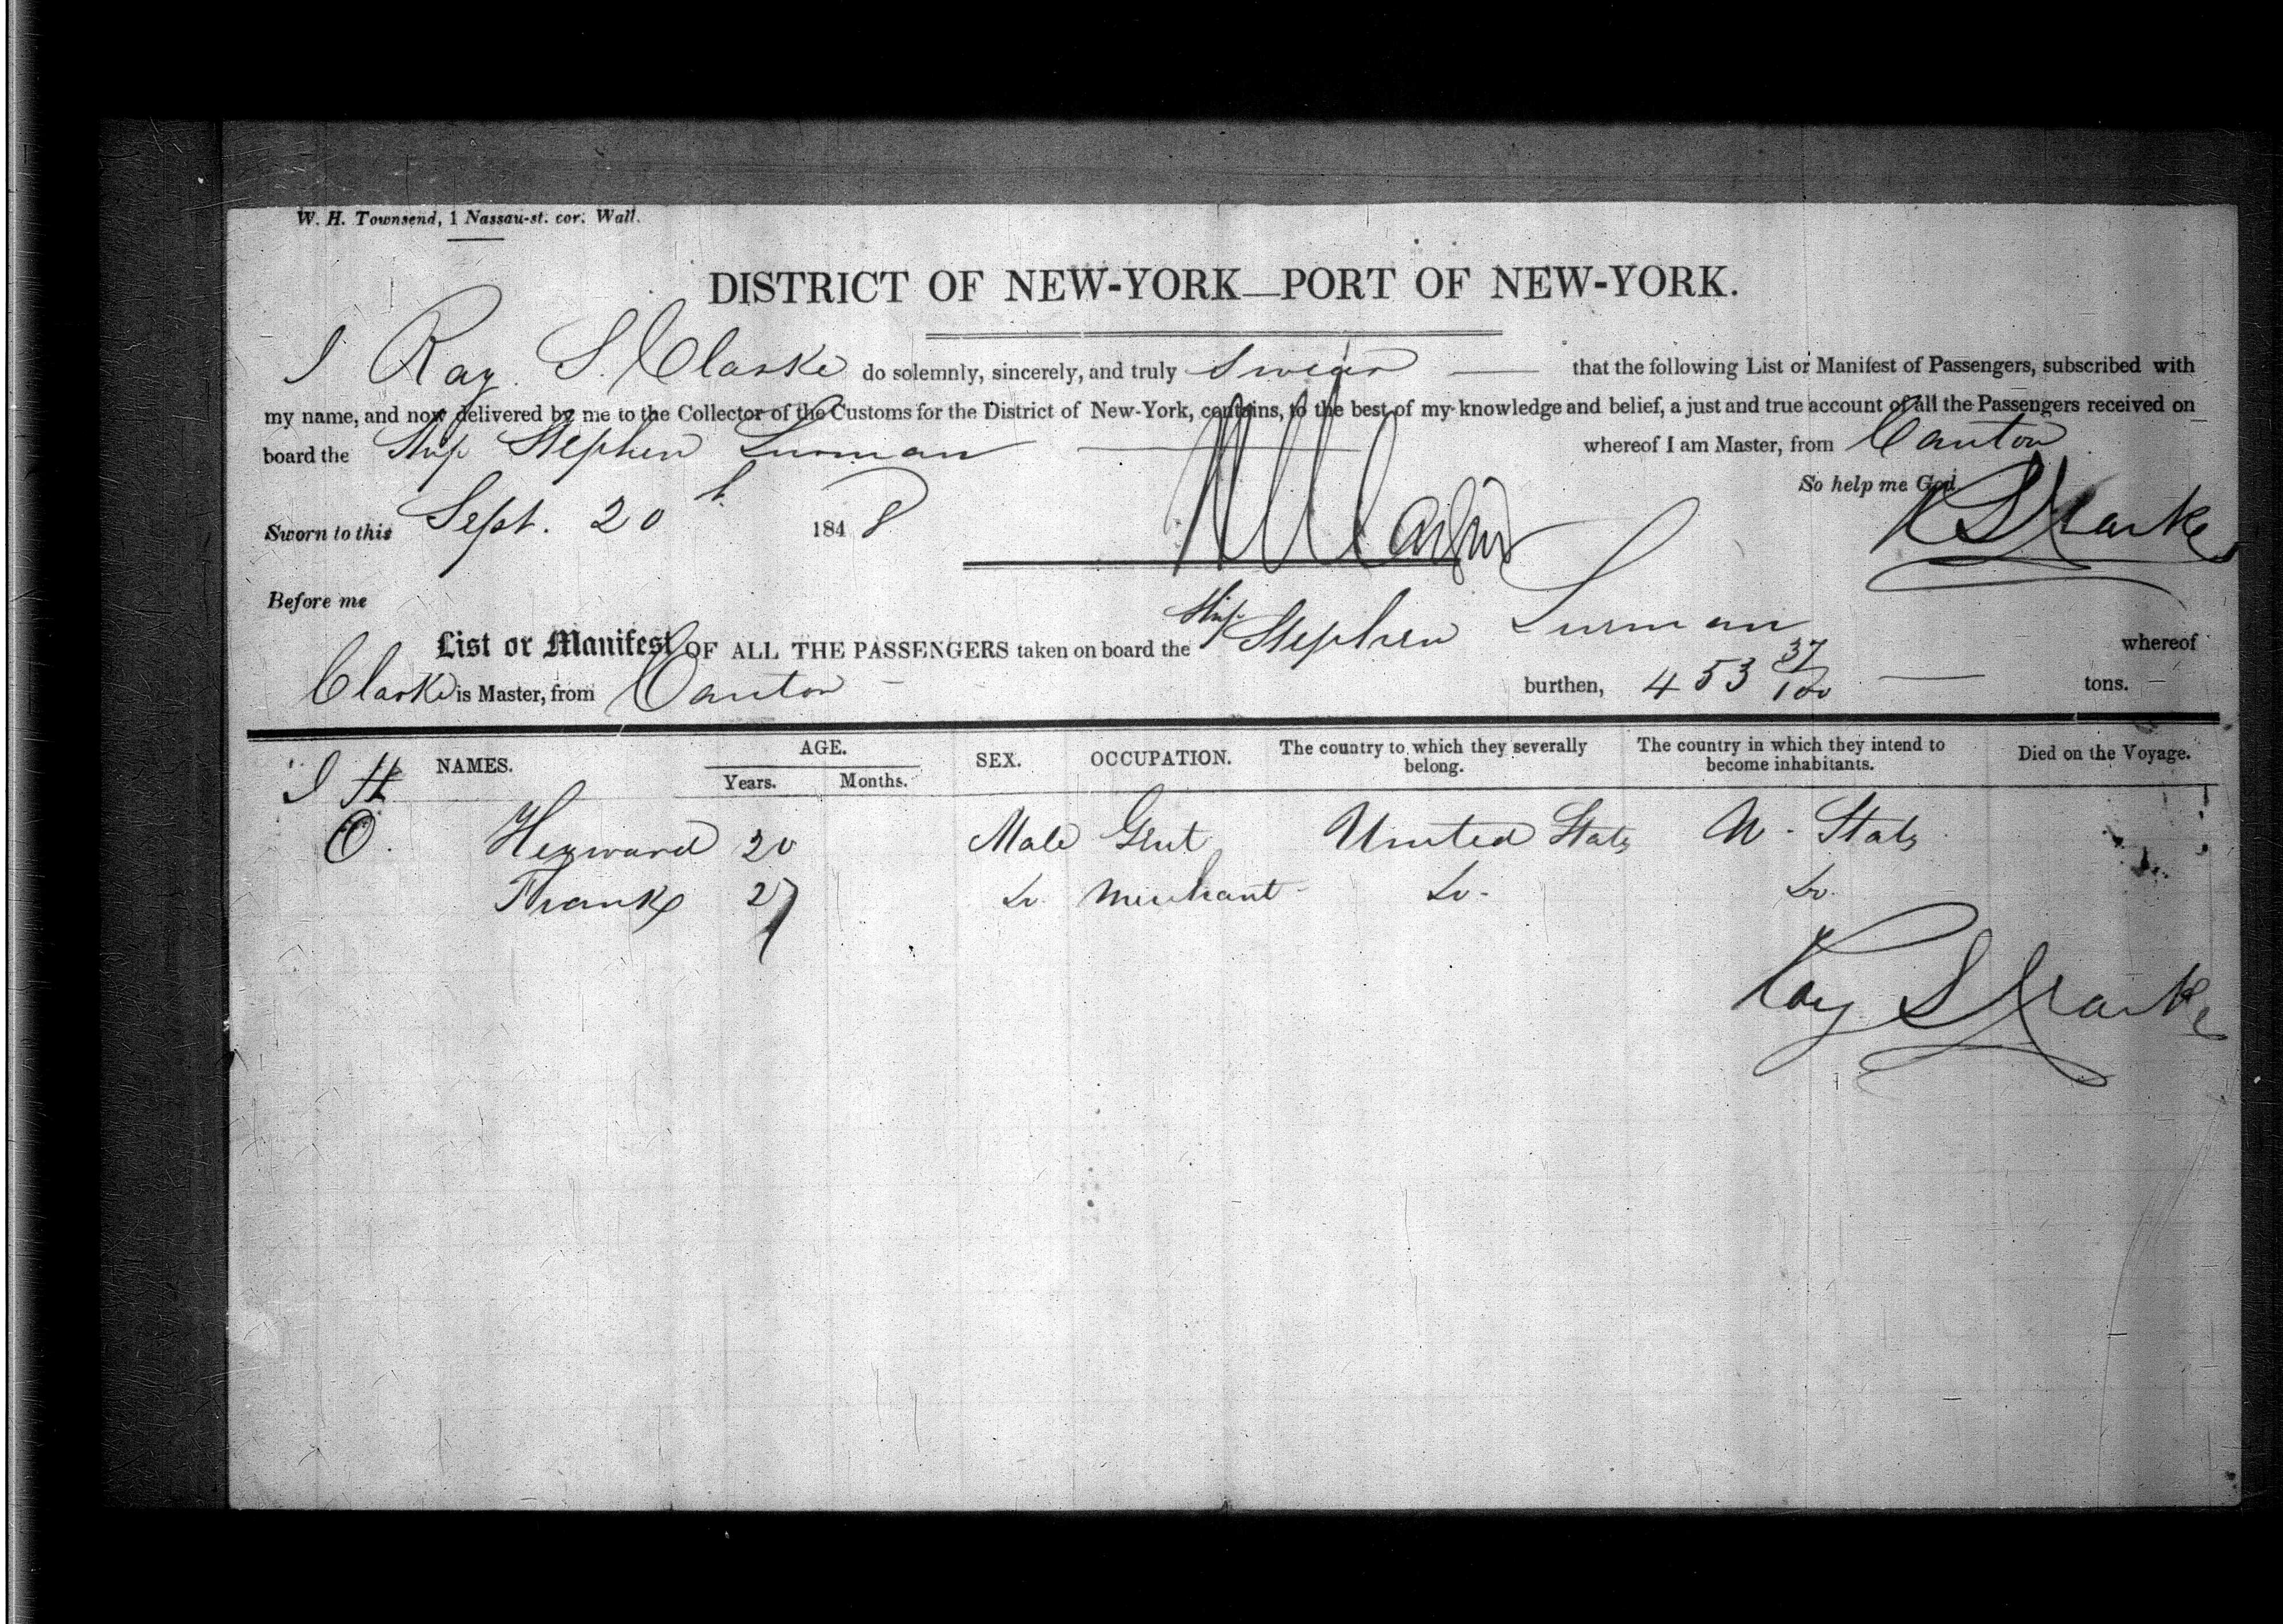 W. H. Townsend, 1 Nassau-st. cor. Wall.
DISTRICT OF NEW-YORK—PORT OF NEW-YORK.
I Ray S. Clarke do solemnly, sincerely, and truly Swear — that the following List or Manifest of Passengers, subscribed with
my name, and now delivered by me to the Collector of the Customs for the District of New-York, contains, to the best of my knowledge and belief, a just and true account of all the Passengers received on
board the Ship Stephen Lurman — whereof I am Master, from Canton
So help me God.
R S Clarke
Sworn to this Sept. 20th 1848
Before me
List or Manifest OF ALL THE PASSENGERS taken on board the Ship Stephen Lurman whereof
Clarke is Master, from Canton — burthen, 453 37/100 — tons.
NAMES. AGE. SEX. OCCUPATION. The country to which they severally belong. The country in which they intend to become inhabitants. Died on the Voyage.
Years. Months.
O. Heyward 20 Male Gent United States U. States
27 Do Merchant Do. Do.
Ray S Clarke